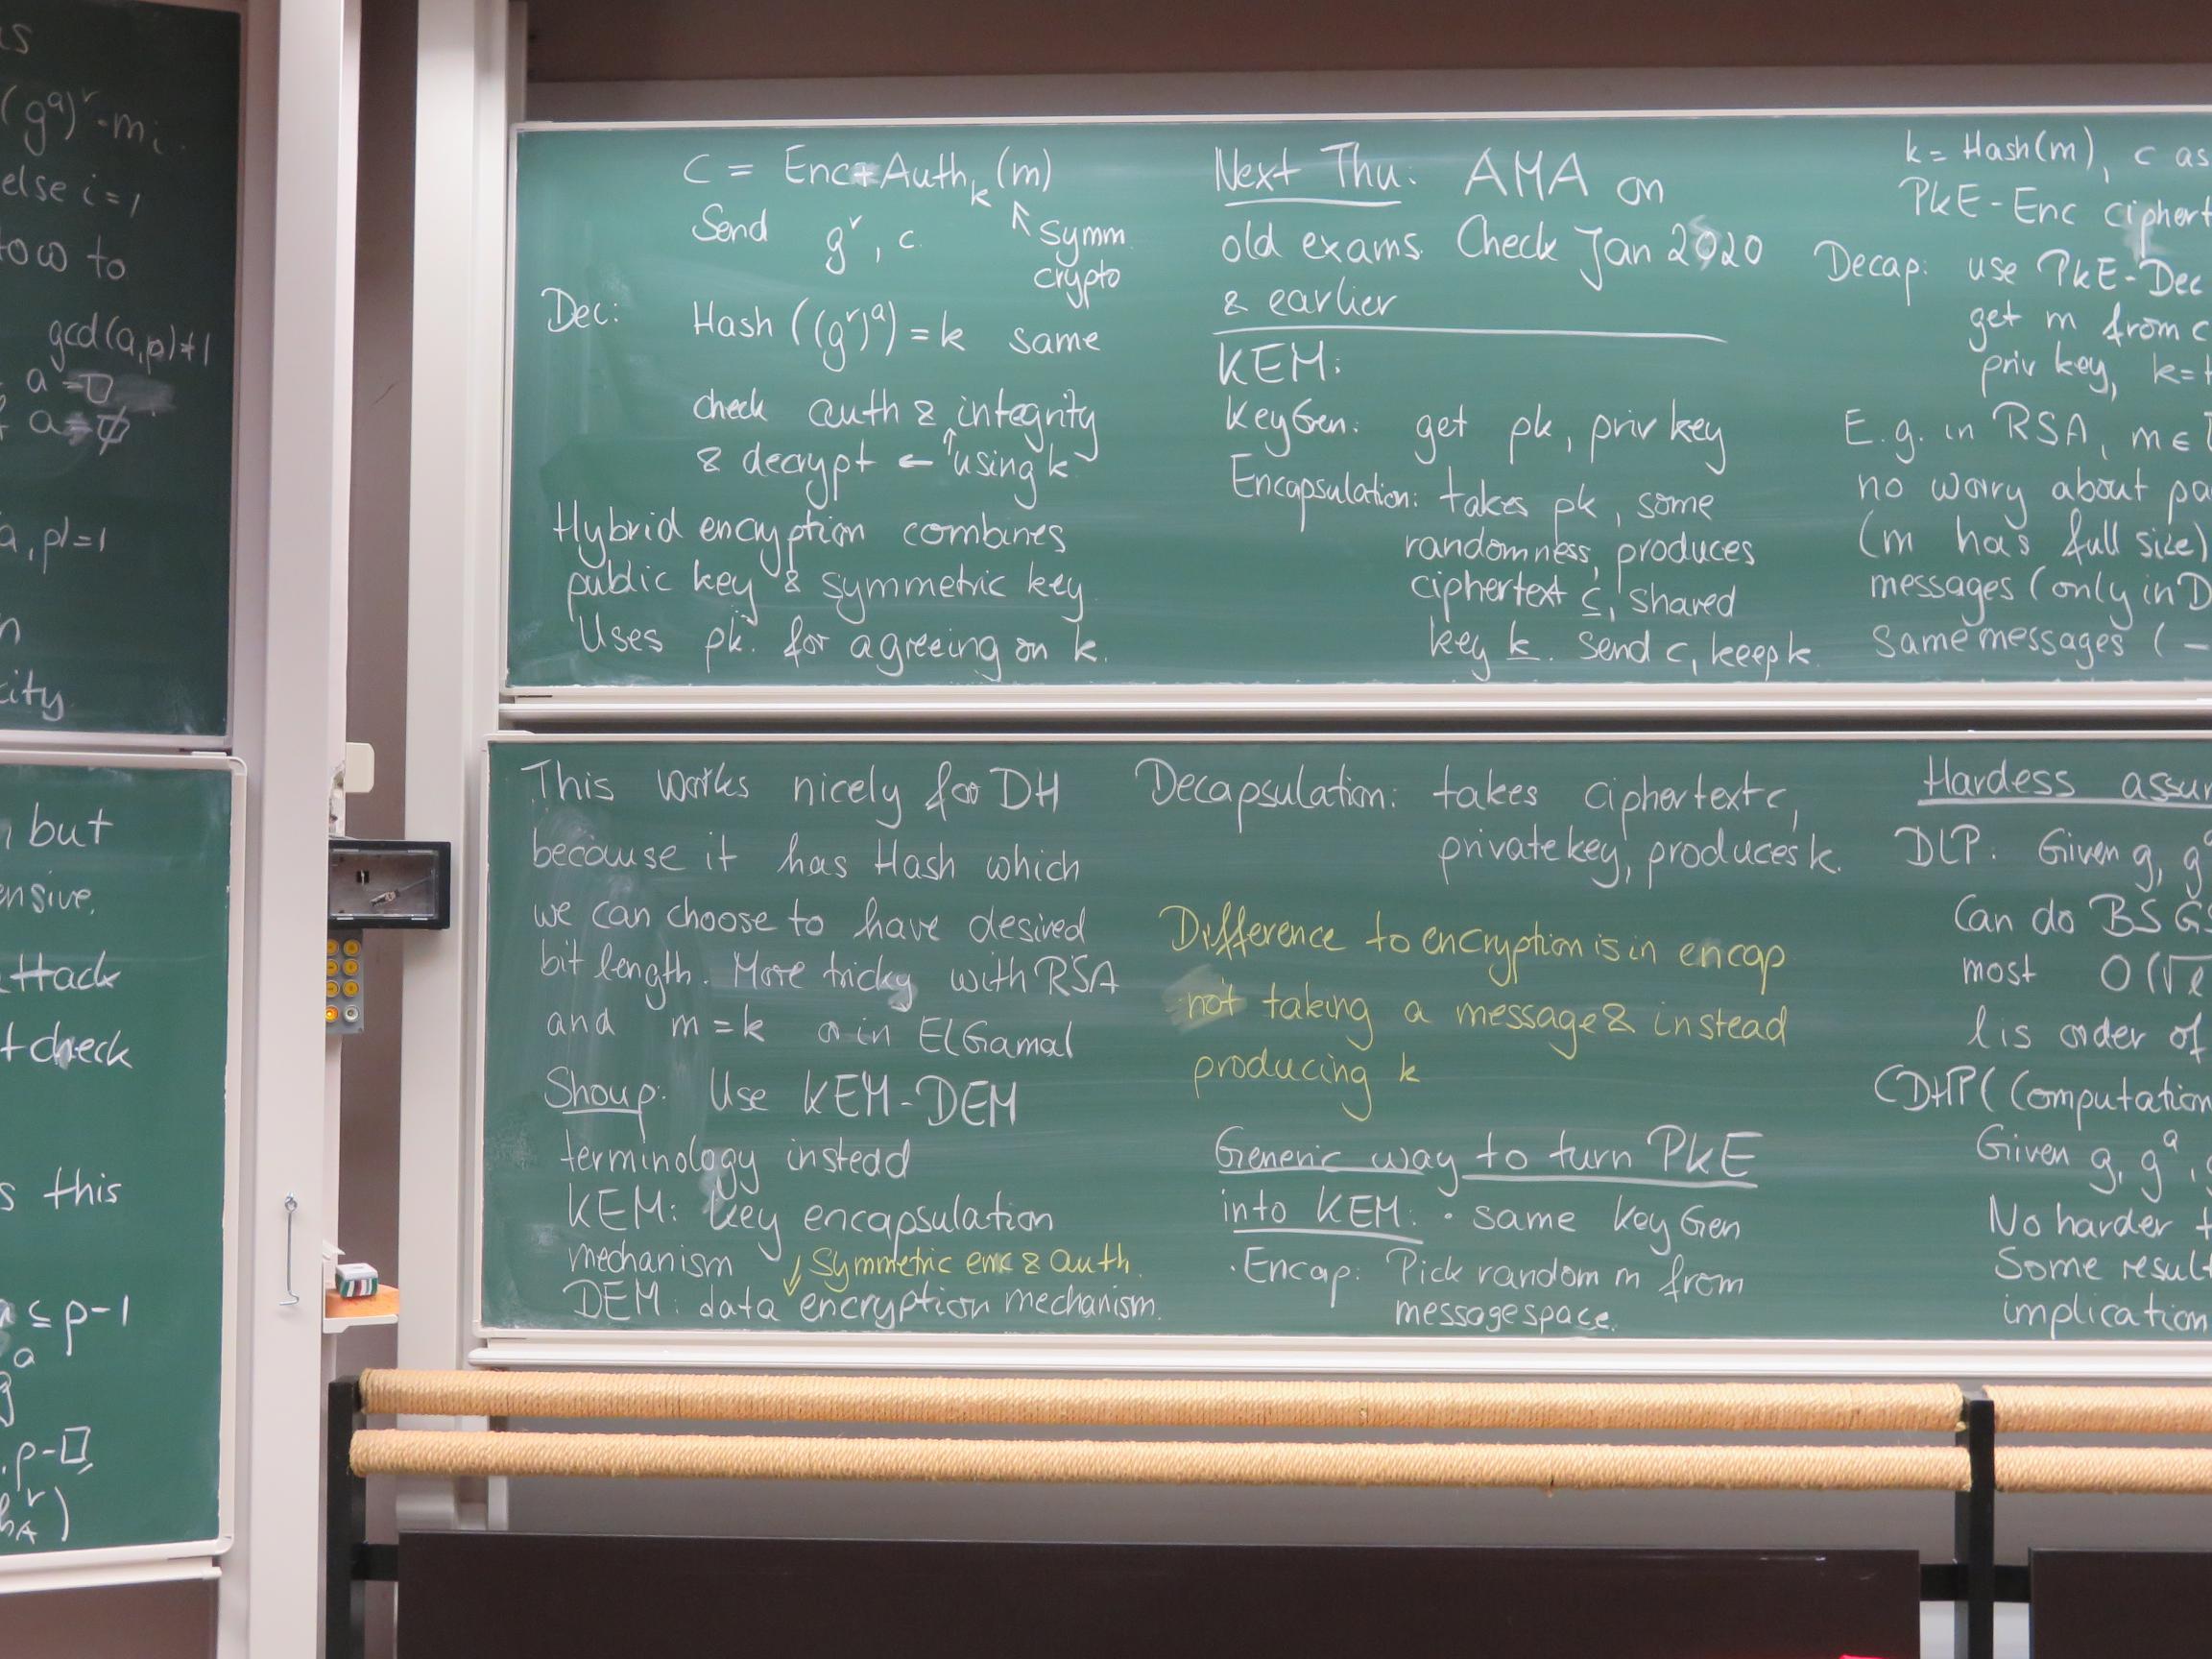 (gᵃ)ʳ·mᵢ
else i=1
gcd(a,p)≠1
a, p)=1
but
check
this
≤ p-1
a
g
C = Enc+Authₖ(m)
Send gʳ, c.
symm.
crypto
Dec: Hash((gʳ)ᵃ) = k same
check auth & integrity
& decrypt ← ↑using k
Hybrid encryption combines
public key & symmetric key
Uses pk. for agreeing on k.
Next Thu: AMA on
old exams. Check Jan 2020
& earlier
KEM:
KeyGen: get pk, priv key
Encapsulation: takes pk, some
randomness, produces
ciphertext c, shared
key k. Send c, keep k.
k = Hash(m), c as
PkE-Enc
Decap: use PkE-Dec
get m from c
priv key, k=
E.g. in RSA, m ∈
no worry about
(m has full size)
messages (only in
same messages (-
This works nicely for DH
because it has Hash which
we can choose to have desired
bit length. More tricky with RSA
and m = k or in ElGamal
Shoup: Use KEM-DEM
terminology instead
KEM: key encapsulation
mechanism ↓ Symmetric enc & auth.
DEM: data encryption mechanism.
Decapsulation: takes ciphertext c,
private key, produces k.
Difference to encryption is in encap
not taking a message & instead
producing k
Generic way to turn PkE
into KEM: · same KeyGen
· Encap: Pick random m from
message space.
Hardess
DLP: Given g, gᵃ
Can do BSGS
most O(√l
l is order of
CDHP (Computation
Given g, gᵃ,
No harder
Some result
implication